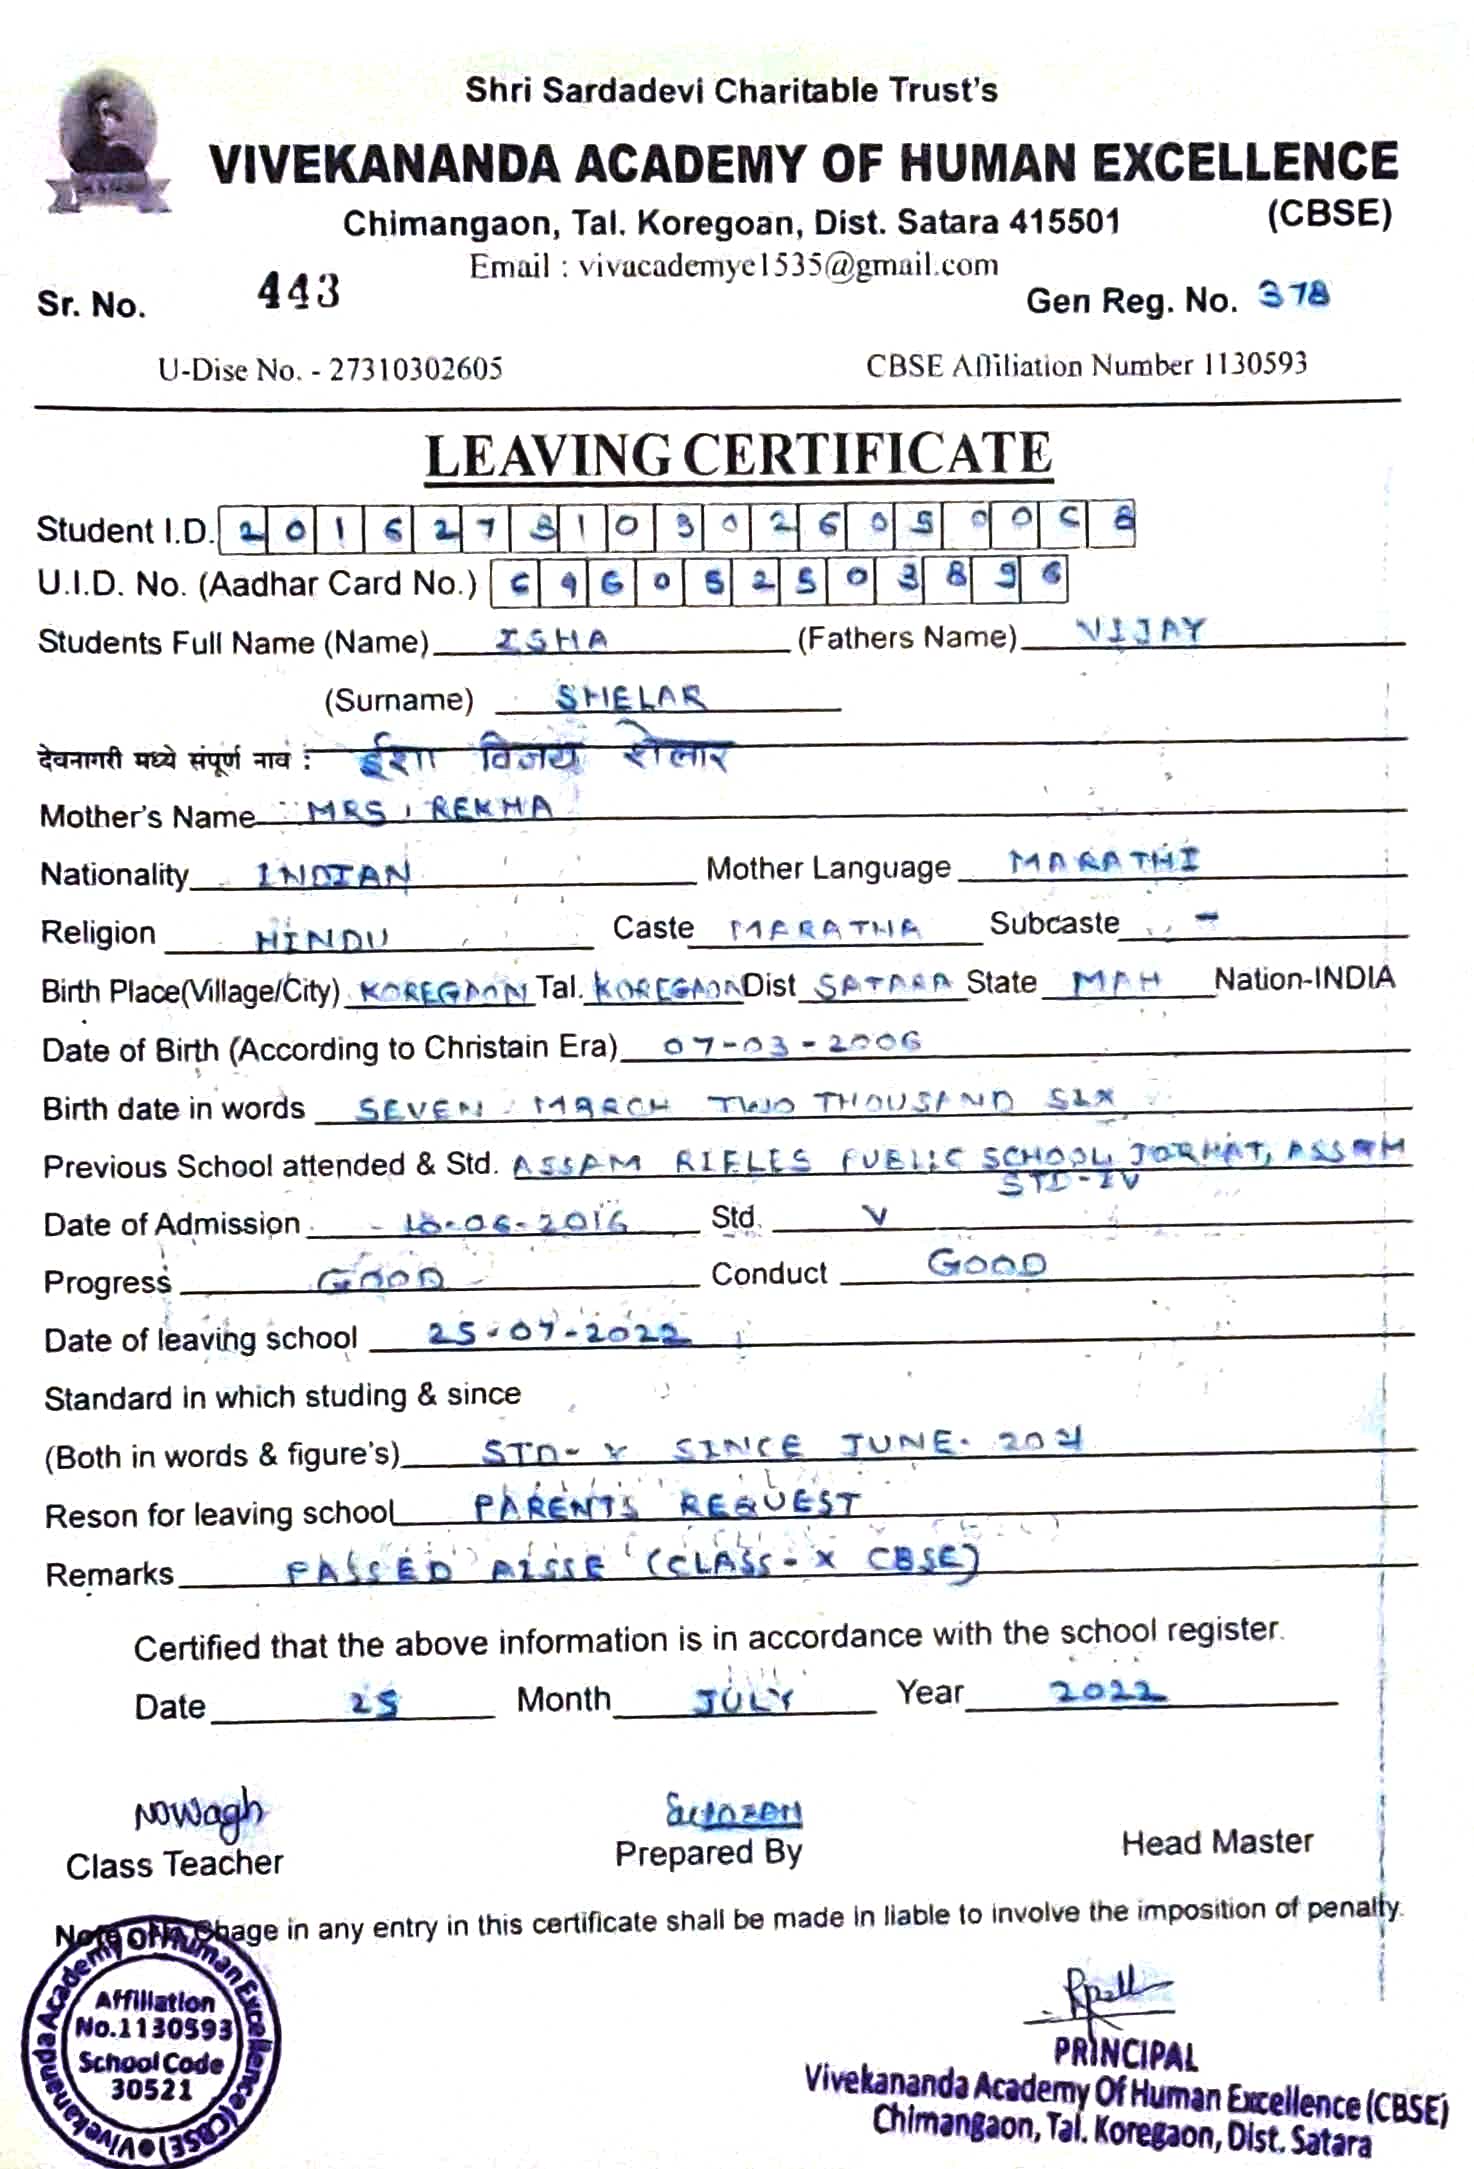 Shri Sardadevi Charitable Trust's
VIVEKANANDA ACADEMY OF HUMAN EXCELLENCE
(CBSE)
Chimangaon, Tal. Koregoan, Dist. Satara 415501
Email : vivacademye1535@gmail.com
Sr. No. 443 Gen Reg. No. 378
U-Dise No. - 27310302605 CBSE Affiliation Number 1130593
LEAVING CERTIFICATE
Student I.D. 2016273103026050068
U.I.D. No. (Aadhar Card No.) 696052503896
Students Full Name (Name) ISHA (Fathers Name) VIJAY
(Surname) SHELAR
देवनागरी मध्ये संपूर्ण नाव : ईशा विजय शेलार
Mother's Name MRS. REKHA
Nationality INDIAN Mother Language MARATHI
Religion HINDU Caste MARATHA Subcaste -
Birth Place(Village/City) KOREGAON Tal. KOREGAON Dist SATARA State MAH Nation-INDIA
Date of Birth (According to Christain Era) 07-03-2006
Birth date in words SEVEN MARCH TWO THOUSAND SIX
Previous School attended & Std. ASSAM RIFLES PUBLIC SCHOOL, JORHAT, ASSAM
STD-IV
Date of Admission 10-06-2016 Std. V
Progress GOOD Conduct GOOD
Date of leaving school 25-07-2022
Standard in which studing & since
(Both in words & figure's) STD- X SINCE JUNE- 2021
Reson for leaving school PARENTS REQUEST
Remarks PASSED AISSE (CLASS-X CBSE)
Certified that the above information is in accordance with the school register.
Date 25 Month JULY Year 2022
NDWagh
Class Teacher Prepared By Head Master
Note No Chage in any entry in this certificate shall be made in liable to involve the imposition of penalty.
Vivekananda Academy Of Human Excellence (CBSE)
Affiliation
No.1130593
School Code
30521
PRINCIPAL
Vivekananda Academy Of Human Excellence (CBSE)
Chimangaon, Tal. Koregaon, Dist. Satara